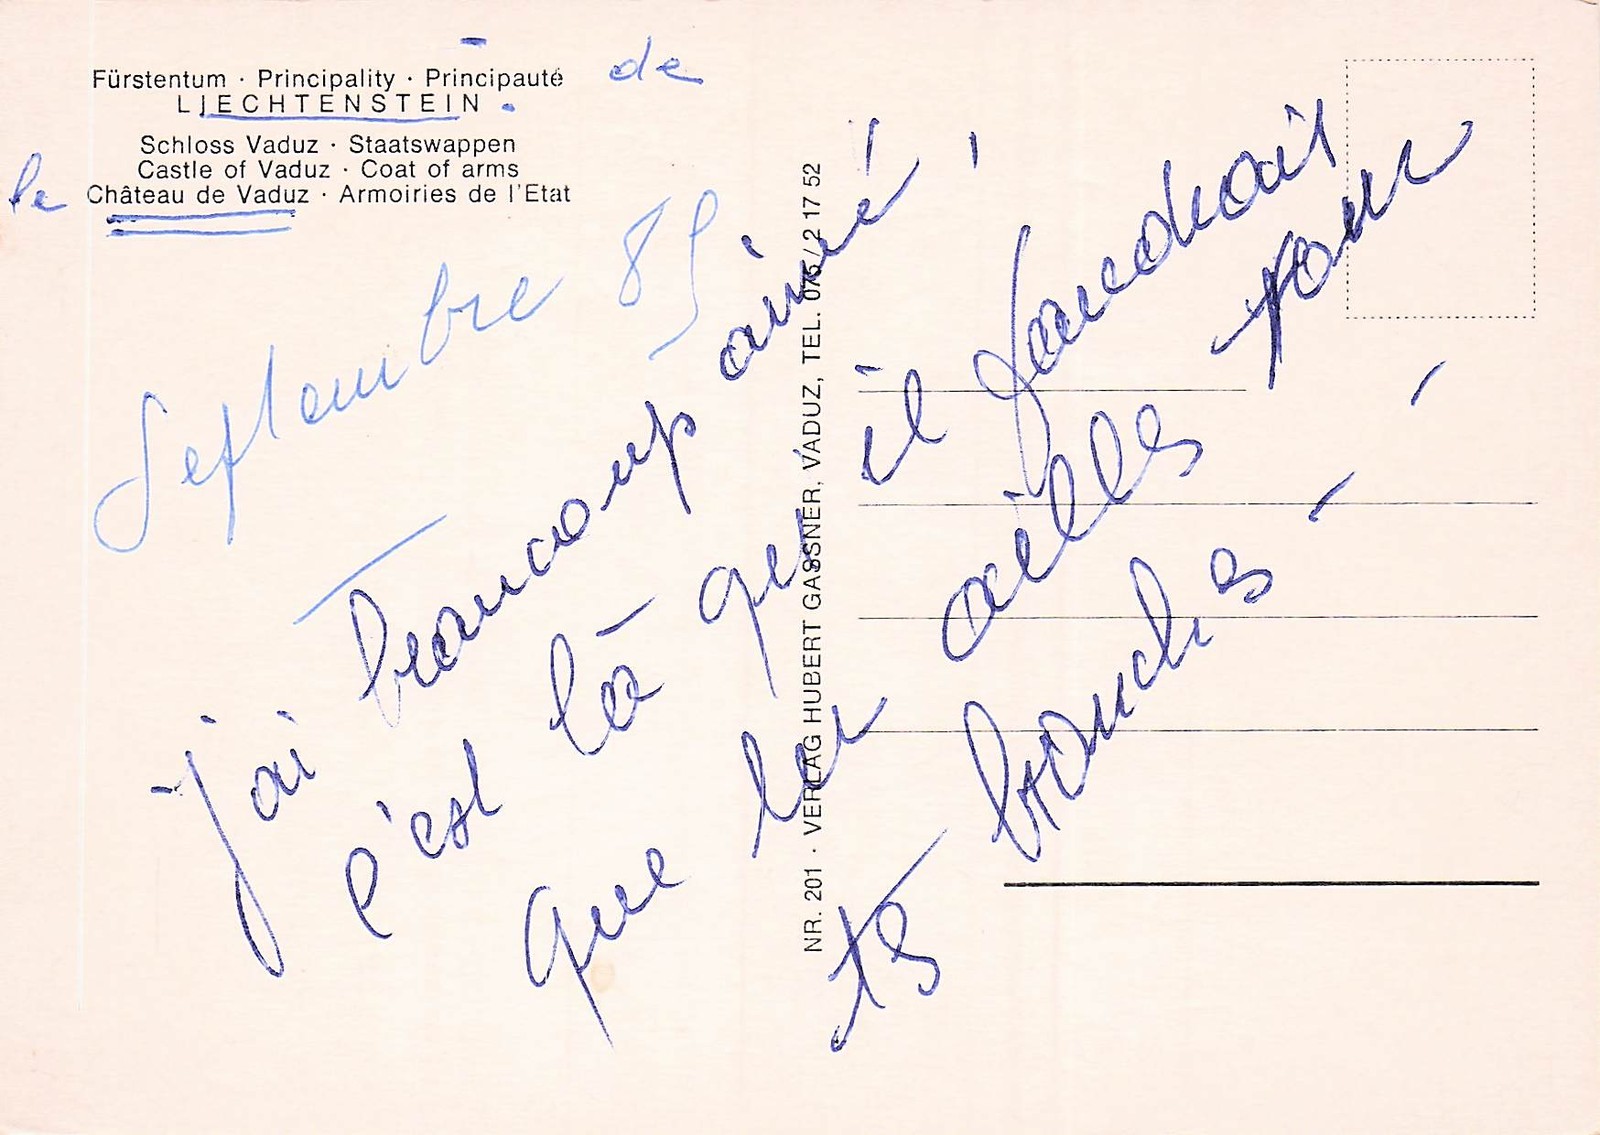 Fürstentum · Principality · Principauté de
LIECHTENSTEIN .
Schloss Vaduz · Staatswappen
Castle of Vaduz · Coat of arms
le Château de Vaduz · Armoiries de l'Etat
Septembre 85
j'ai beaucoup aimé !
c'est là qu' il faudrait
que les ailles pour
ts bouchs
NR. 201 · VERLAG HUBERT GASSNER, VADUZ, TEL. 075 / 2 17 52